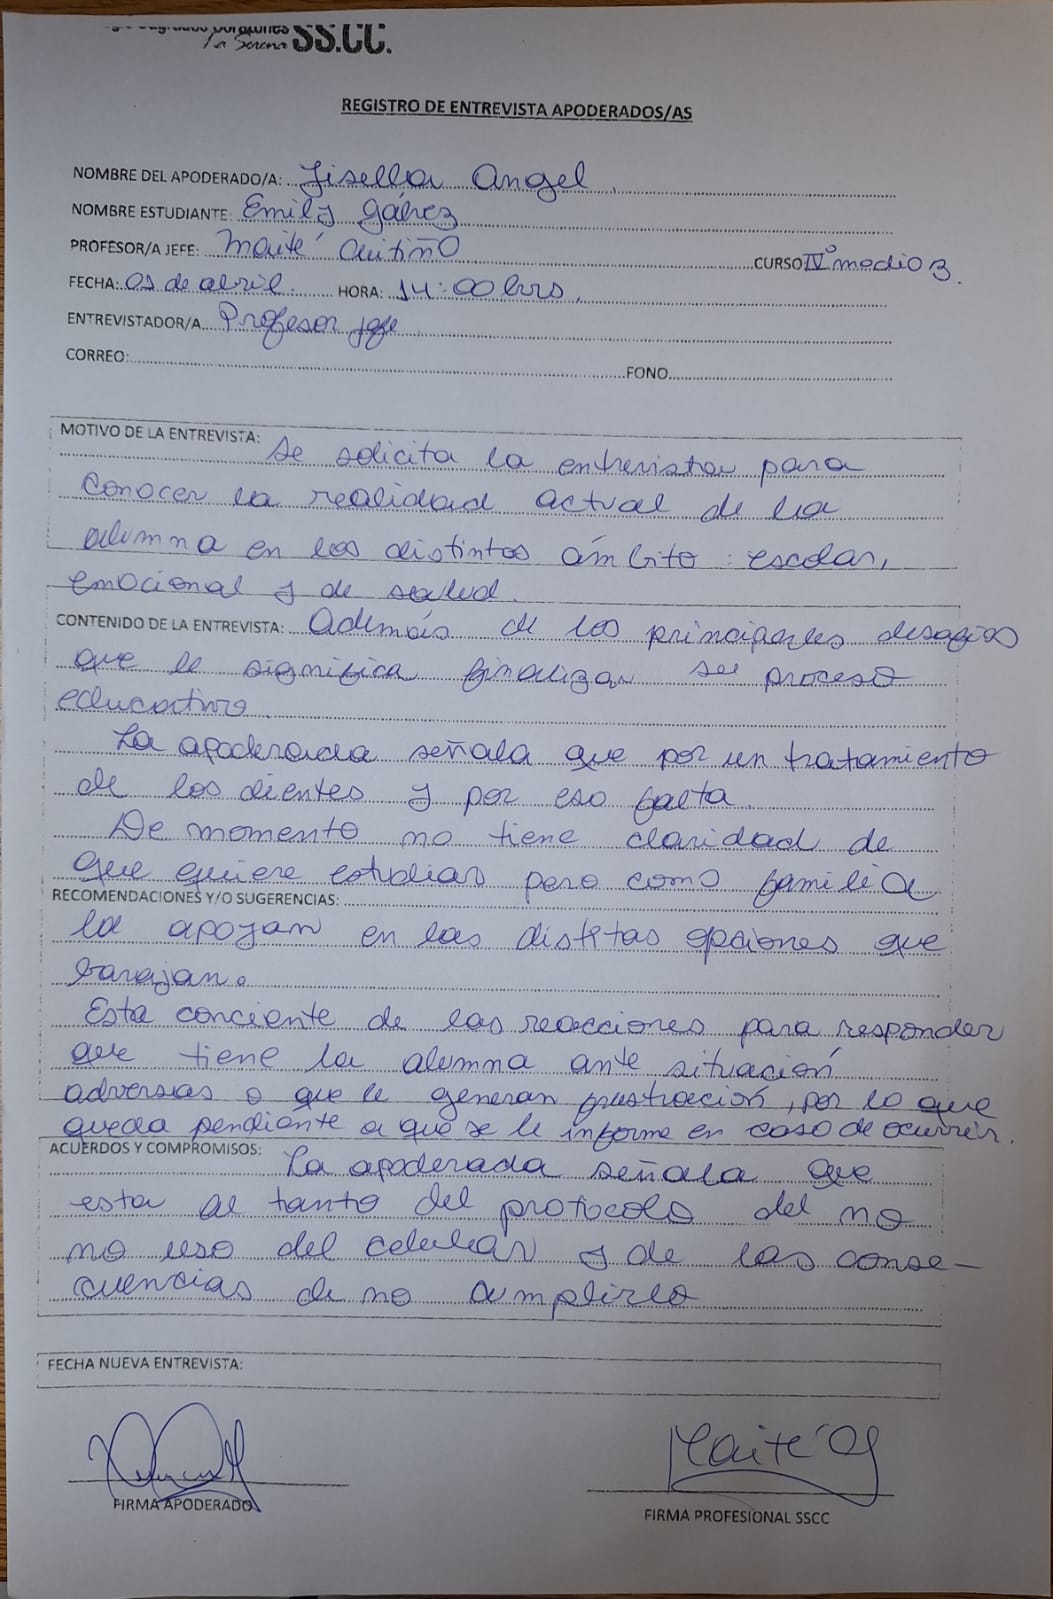 Sagrados Corazones
La Serena SS.CC.
REGISTRO DE ENTREVISTA APODERADOS/AS
NOMBRE DEL APODERADO/A: Jisella Angel
NOMBRE ESTUDIANTE: Emily Gálvez
PROFESOR/A JEFE: Maité Quitiño CURSO IVº medio B.
FECHA: 01 de abril. HORA: 14:00 hrs.
ENTREVISTADOR/A Profesor jefe
CORREO: FONO
MOTIVO DE LA ENTREVISTA: Se solicita la entrevista para
conocer la realidad actual de la
alumna en los distintos ámbito: escolar,
emocional y de salud.
CONTENIDO DE LA ENTREVISTA: Además de los principales desafios
que le significa finalizar su proceso
educativo.
La apoderada señala que por un tratamiento
de los dientes y por eso falta.
De momento no tiene claridad de
que quiere estudiar pero como familia
RECOMENDACIONES Y/O SUGERENCIAS:
la apoyan en las distitas opciones que
barajan.
Esta conciente de las reacciones para responder
que tiene la alumna ante situación
adversas o que le generan frustración, por lo que
queda pendiente a que se le informe en caso de ocurrir.
ACUERDOS Y COMPROMISOS: La apoderada señala que
esta al tanto del protocolo del no
no uso del celular y de las conse-
cuencias de no cumplirlo
FECHA NUEVA ENTREVISTA:
Maite
FIRMA APODERADO
FIRMA PROFESIONAL SSCC